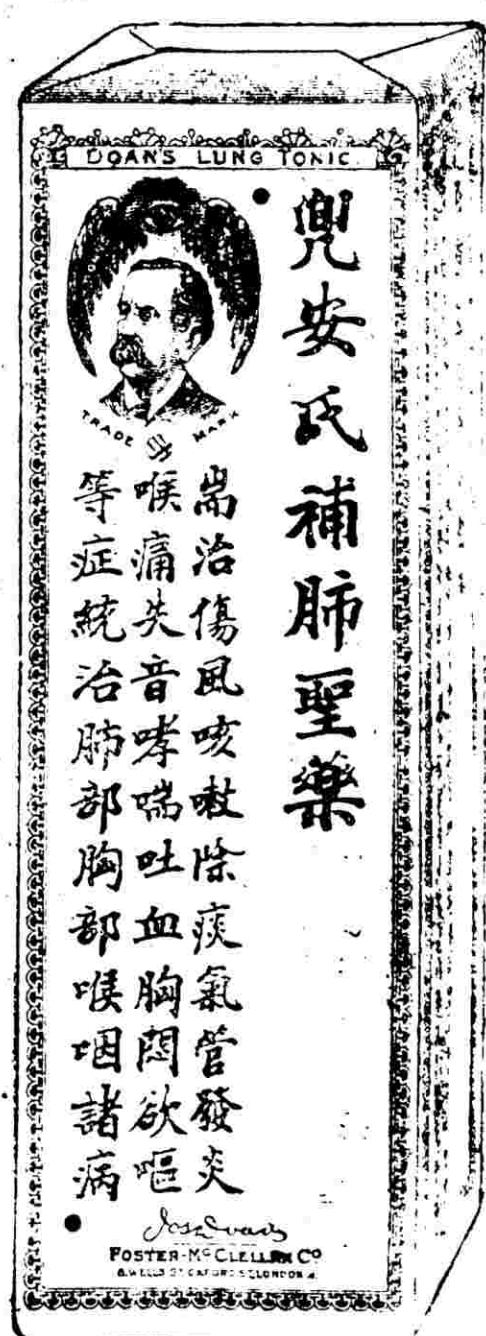 DOAN'S LUNG TONIC.
TRADE MARK
兜安氏補肺聖藥
耑治傷風咳嗽除痰氣管發炎
喉痛失音哮喘吐血胸悶欲嘔
等症統治肺部胸部喉咽諸病
FOSTER-McCLELLAN CO
8, WELLS ST. OXFORD ST. LONDON